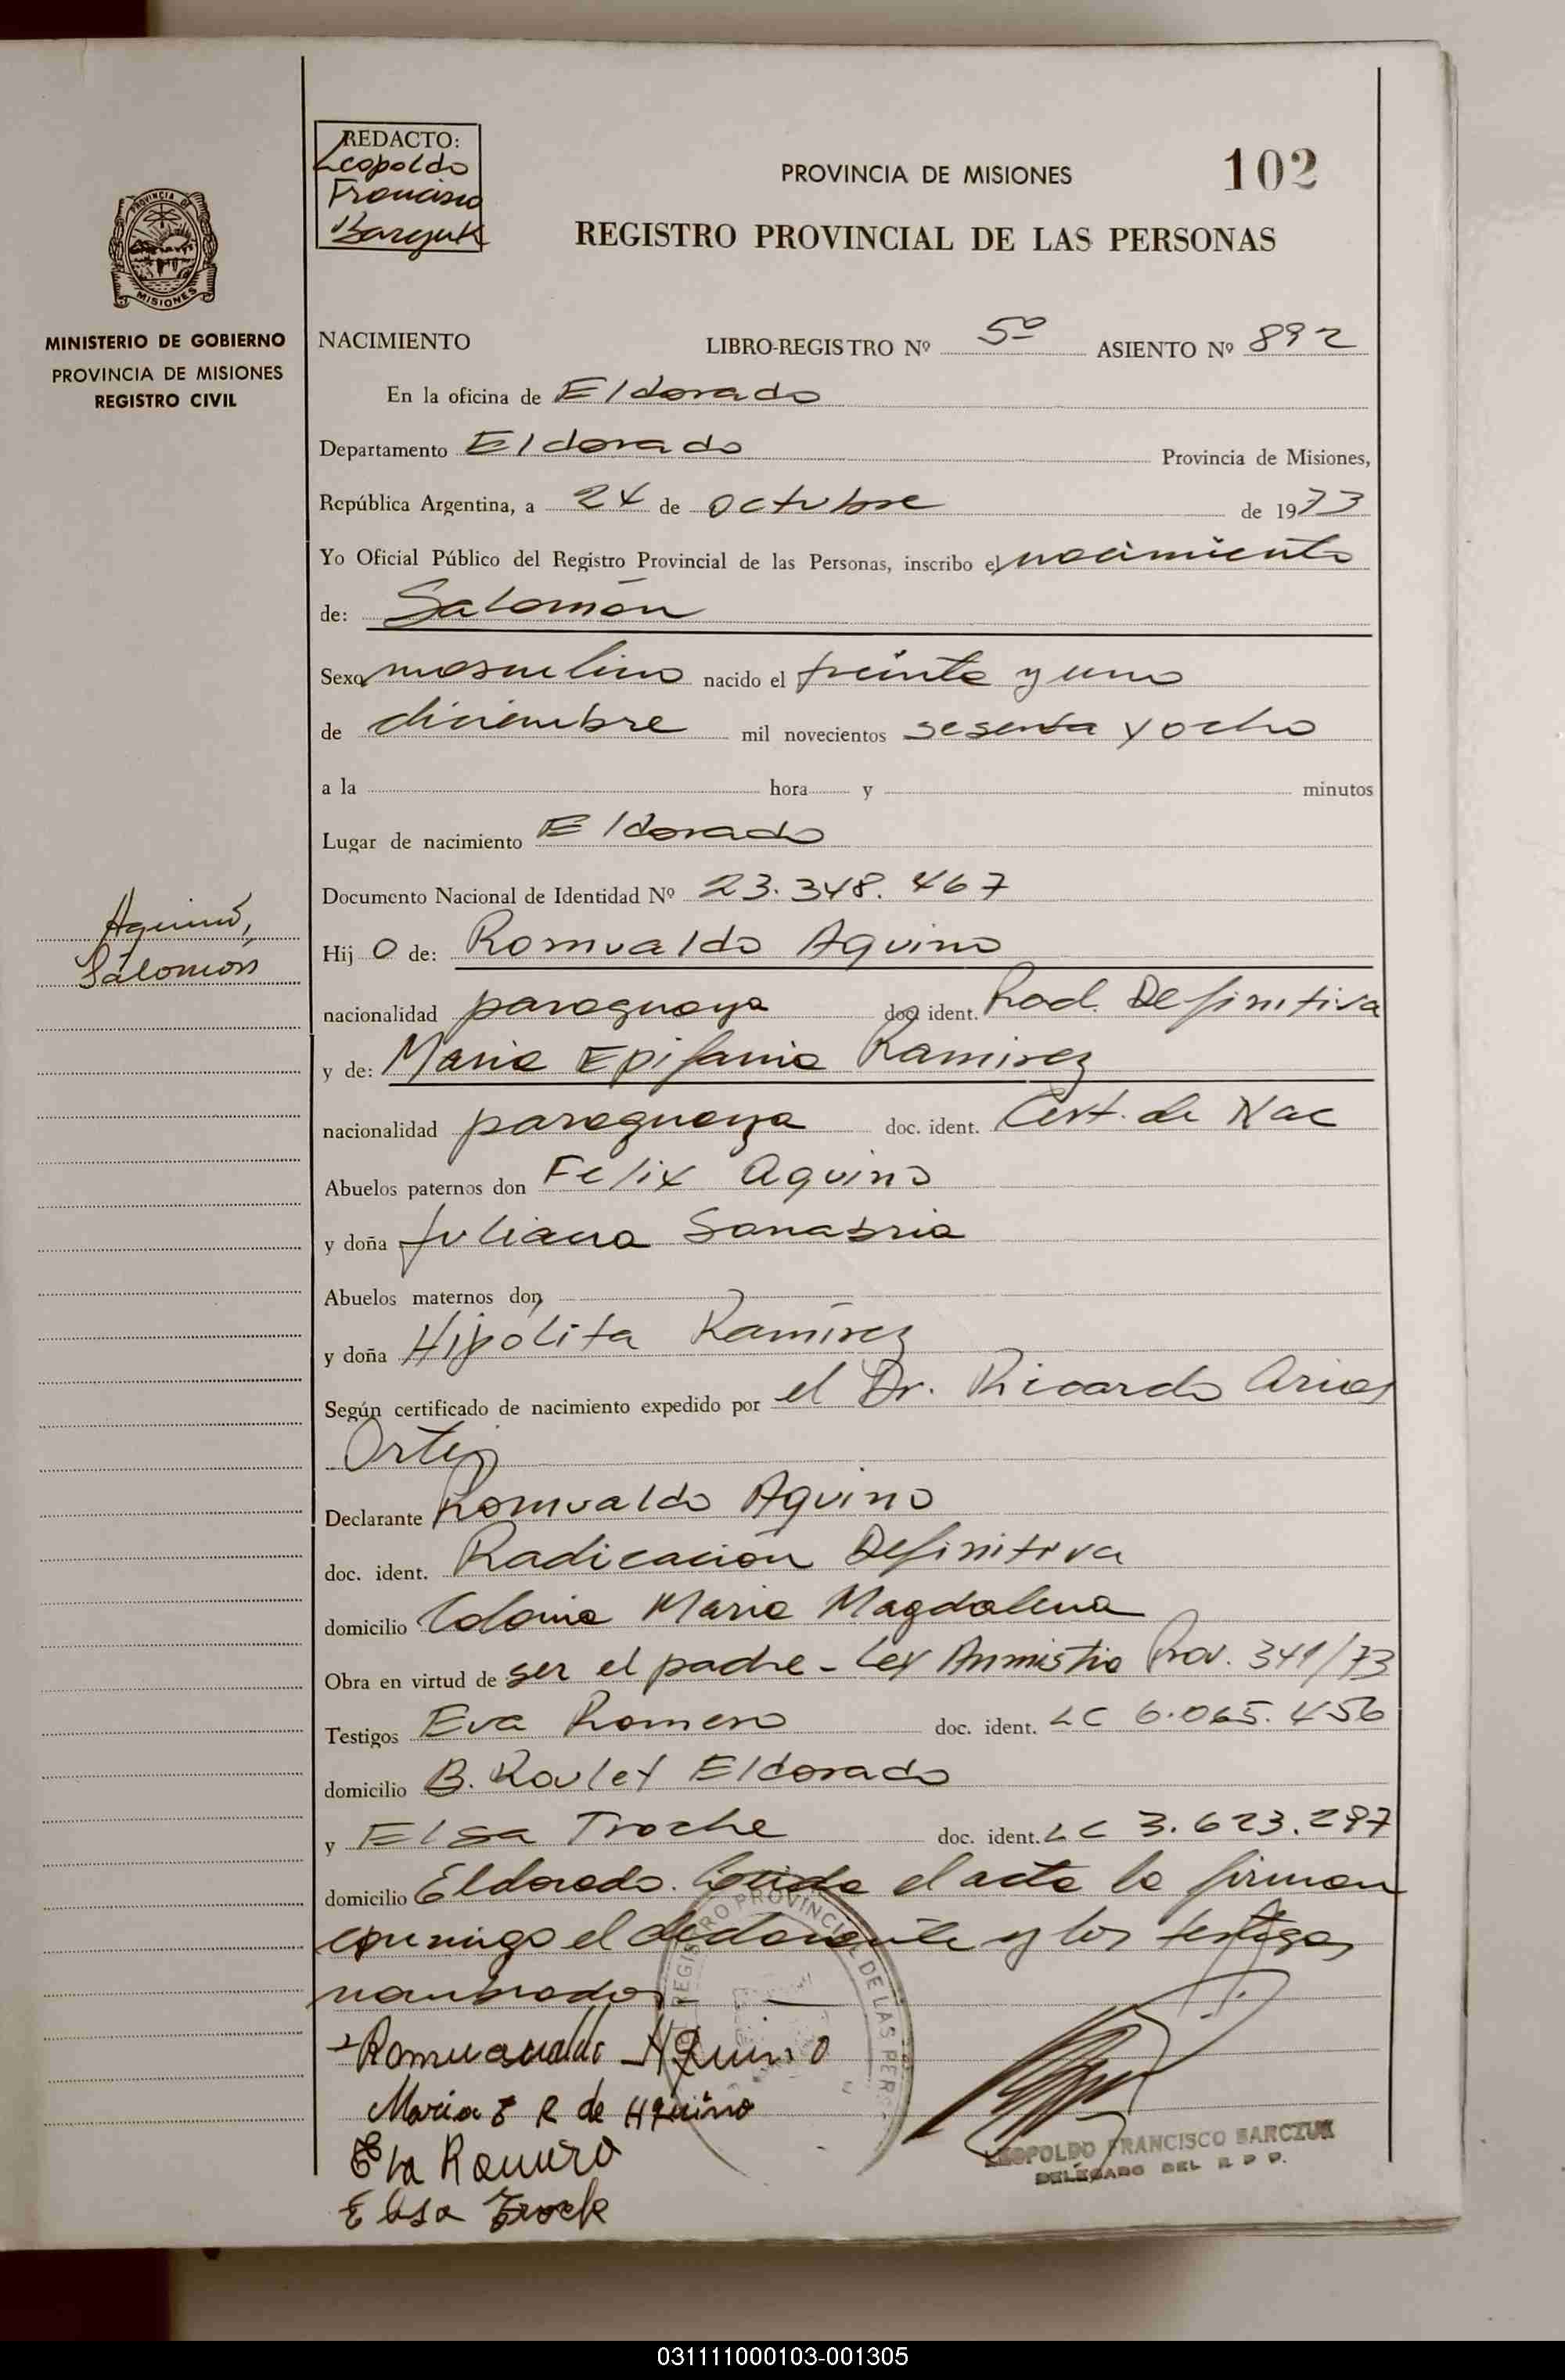 REDACTO:
Leopoldo
Francisco
Barczuk
PROVINCIA DE MISIONES
102
REGISTRO PROVINCIAL DE LAS PERSONAS
PROVINCIA DE
MISIONES
MINISTERIO DE GOBIERNO
PROVINCIA DE MISIONES
REGISTRO CIVIL
NACIMIENTO LIBRO-REGISTRO Nº 5º ASIENTO Nº 892
En la oficina de Eldorado
Departamento Eldorado Provincia de Misiones,
República Argentina, a 24 de octubre de 1973
Yo Oficial Público del Registro Provincial de las Personas, inscribo el nacimiento
de: Salomón
Sexo masculino nacido el treinta y uno
de diciembre mil novecientos sesenta y ocho
a la hora y minutos
Lugar de nacimiento Eldorado
Documento Nacional de Identidad Nº 23.348.467
Aquino,
Salomón
Hij o de: Romualdo Aquino
nacionalidad paraguaya doc. ident. Rad. Definitiva
y de: Maria Epifania Ramirez
nacionalidad paraguaya doc. ident. Cert. de Nac
Abuelos paternos don Felix Aquino
y doña Juliana Sanabria
Abuelos maternos don
y doña Hipólita Ramírez
Según certificado de nacimiento expedido por el Dr. Ricardo Arias
Ortiz
Declarante Romualdo Aquino
doc. ident. Radicación Definitiva
domicilio Colonia Maria Magdalena
Obra en virtud de ser el padre - Ley Anmistia Prov. 341/73
Testigos Eva Romero doc. ident. LC 6.065.456
domicilio B. Roulet Eldorado
y Elsa Troche doc. ident. LC 3.623.287
domicilio Eldorado. Leída el acta la firman
conmigo el declarante y los testigos
nombrados
Romuaualdo Aquino
Maria E R de Aquino
Eva Romero
Elsa Trock
REGISTRO PROVINCIAL DE LAS PERS
LEOPOLDO FRANCISCO BARCZUK
DELEGADO DEL R P P.
031111000103-001305